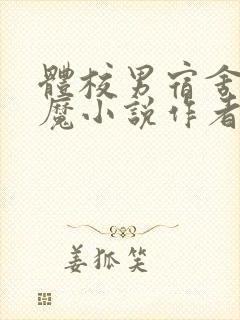 體校男宿舍
魔小說作者
姜狐笑